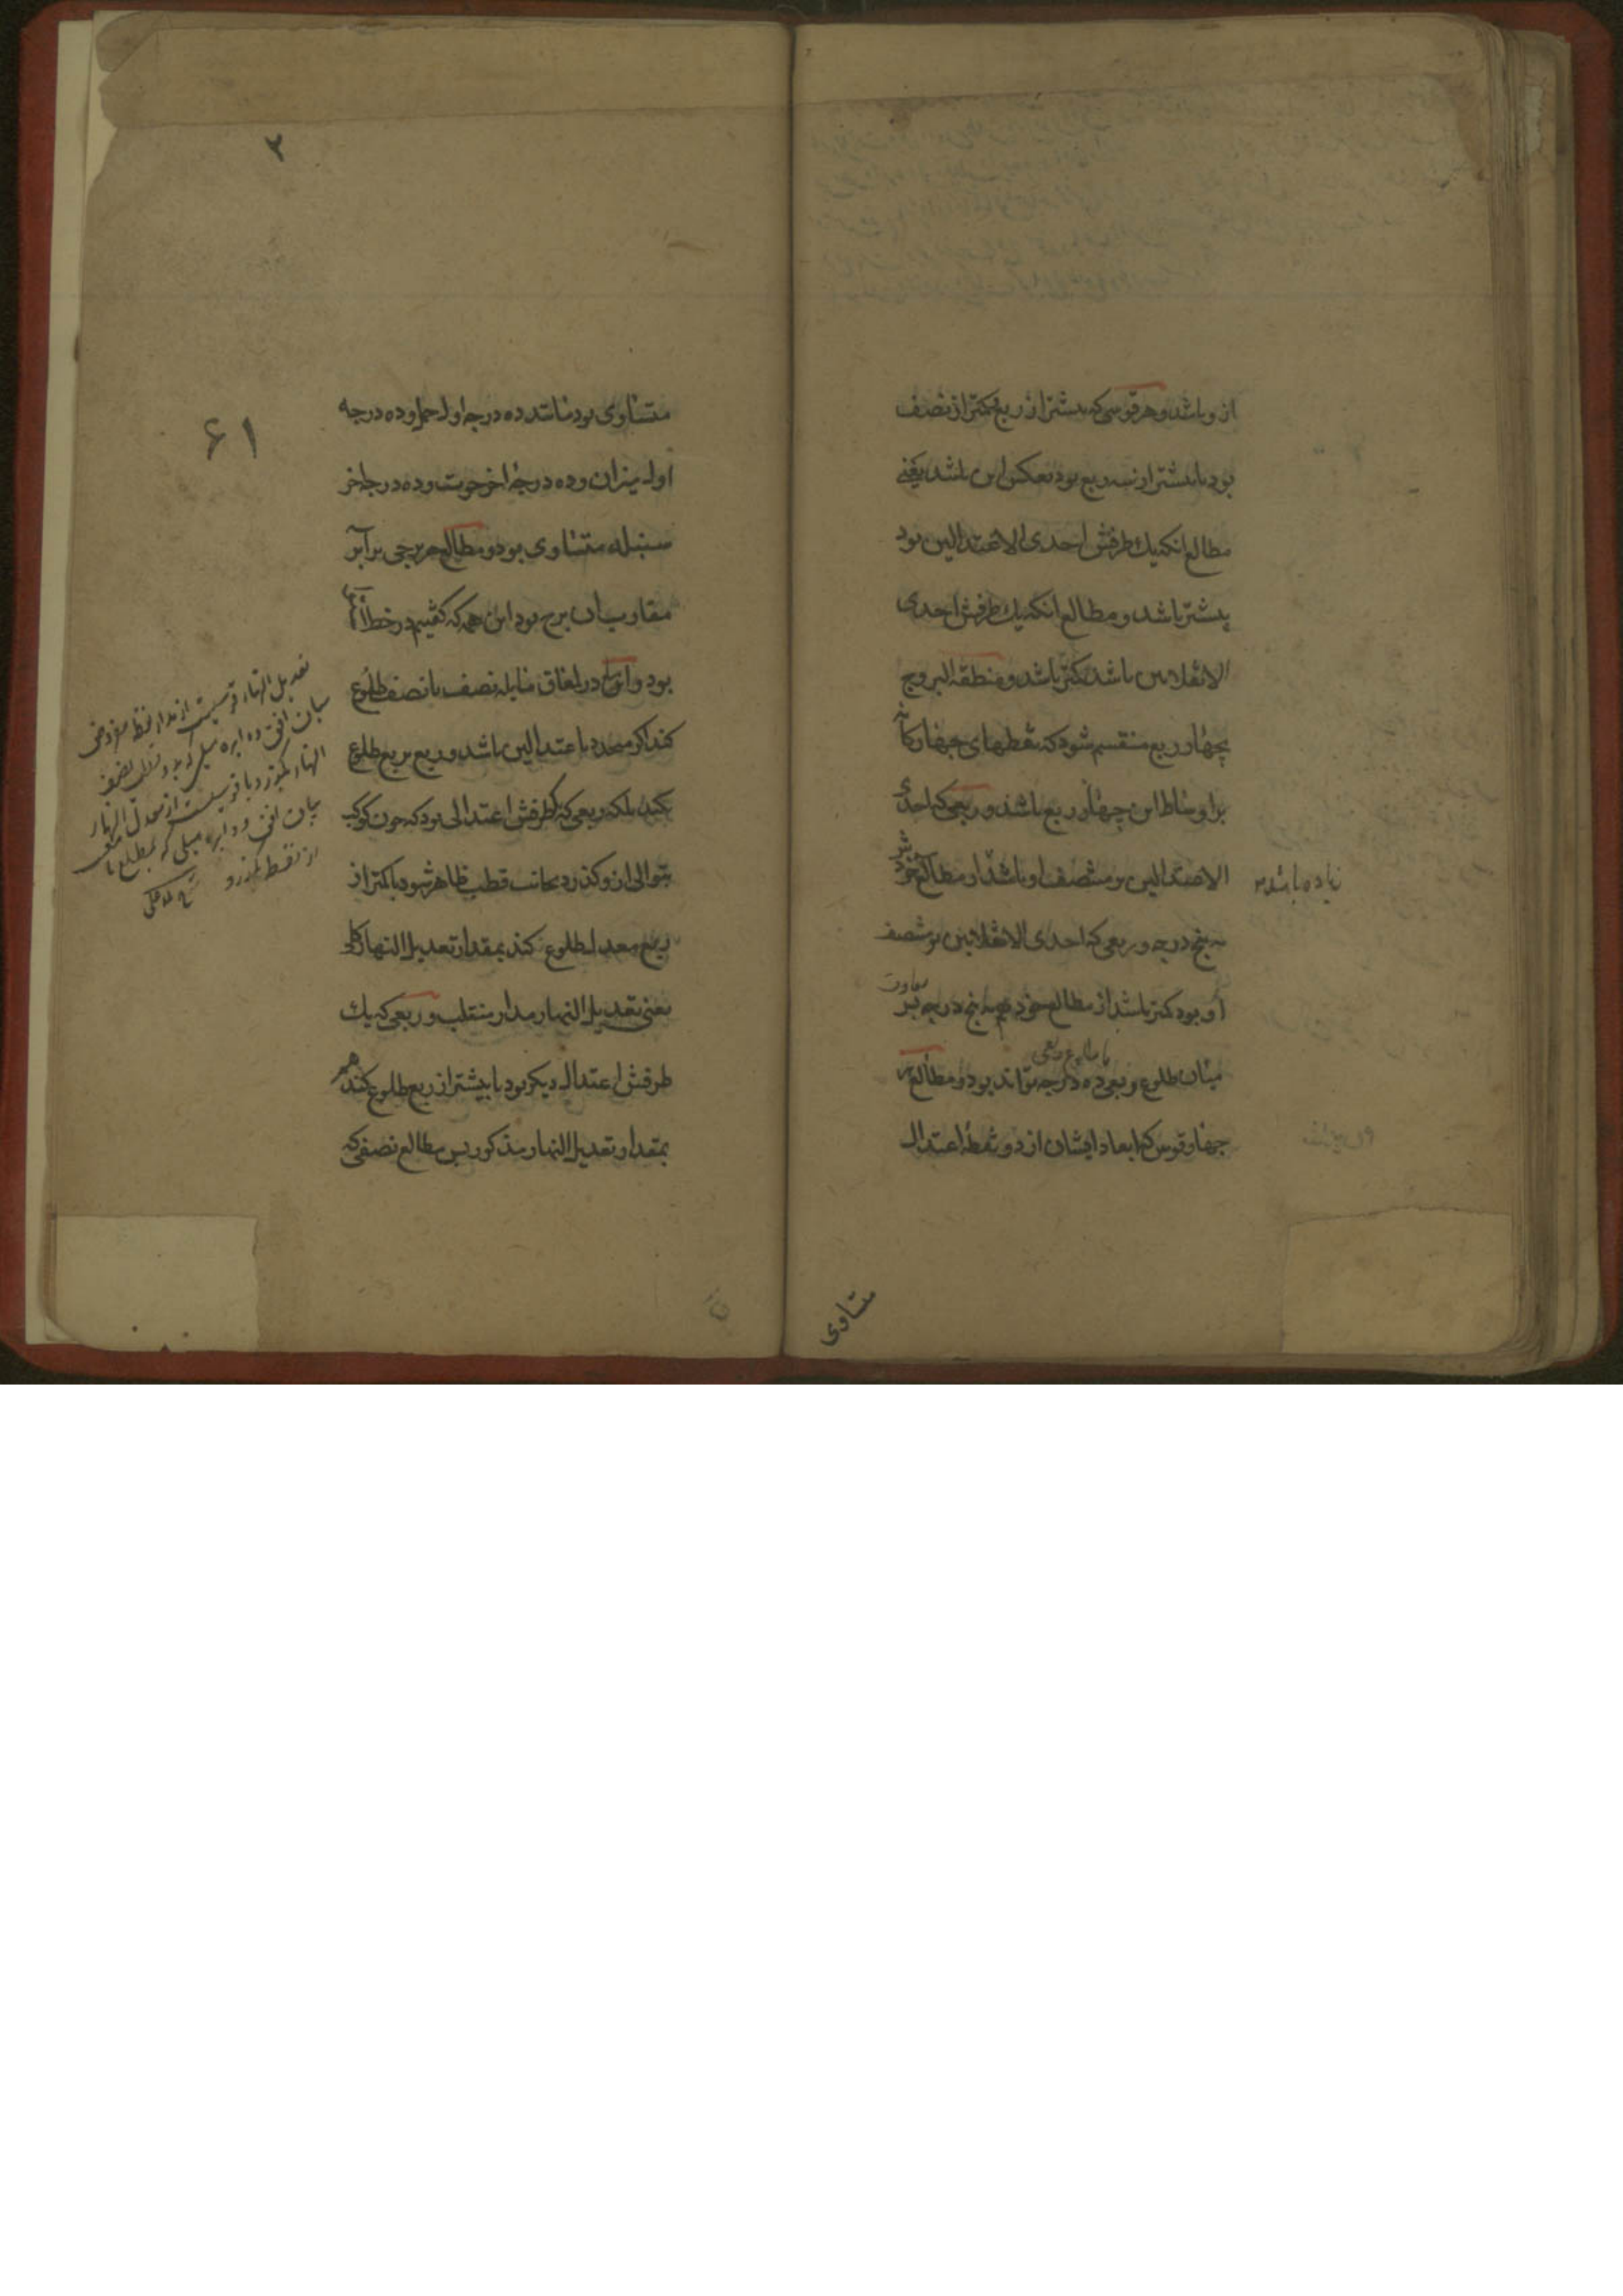 از و باشد و هر قوسی که بیشتر از ربع و کمتر از نصف
بود یا بیشتر از سه ربع بود بعکس این باشد یعنی
مطالع انکه یک طرفش احدی الاعتدالین بود
بیشتر باشد و مطالع انکه یک طرفش احدی
الانقلابین باشد کمتر باشد و منطقة البروج
بچهار ربع منقسم شود که نقطهای چهارکانه
بر اوساط این چهار ربع باشد و ربعی که احدی
الاعتدالین بر منتصف او باشد از مطالع خود
زیاده باشد
به پنج درجه و ربعی که احدی الانقلابین بر منتصف
او بود کمتر باشد از مطالع خود هم به پنج درجه پس
تفاوت
میان طلوع ربعی ده درجه تواند بود و مطالع هر
با طلوع ربعی
چهار قوس که ابعاد ایشان از دو نقطه اعتدال
متساوی
۲
۶۱
متساوی بود مانند ده درجه اول حمل و ده درجه
اول میزان و ده درجهٔ اخر حوت و ده درجه اخر
سنبله متساوی بود و مطالع هر برجی برابر
مقارب ان برج بود این همه که گفتیم در خط استوا
بود و اما در افاق مایله نصف با نصف طلوع
کند اکر محدد باعتدالین باشد و ربع بربع طلوع
نکند بلکه ربعی که طرفش اعتدالی بود که چون کوکب
بتوالی از و کذرد بجانب قطب ظاهر شود با کمتر از
ربع معدل طلوع کند بمقدار تعدیل النهار کلی
یعنی تعدیل النهار مدار منقلب و ربعی که یک
طرفش اعتدال دیکر بود با بیشتر از ربع طلوع کند هم
بمقدار تعدیل النهار مذکور پس مطالع نصفی که
تعدیل النهار قوسیست از مدار نقطه مفروض
میان افق و دایره میلی که
النهار بکذرد یا قوسیست از معدل النهار
میان افق و دایره میلی که بمطلع
از نقطه بکذرد